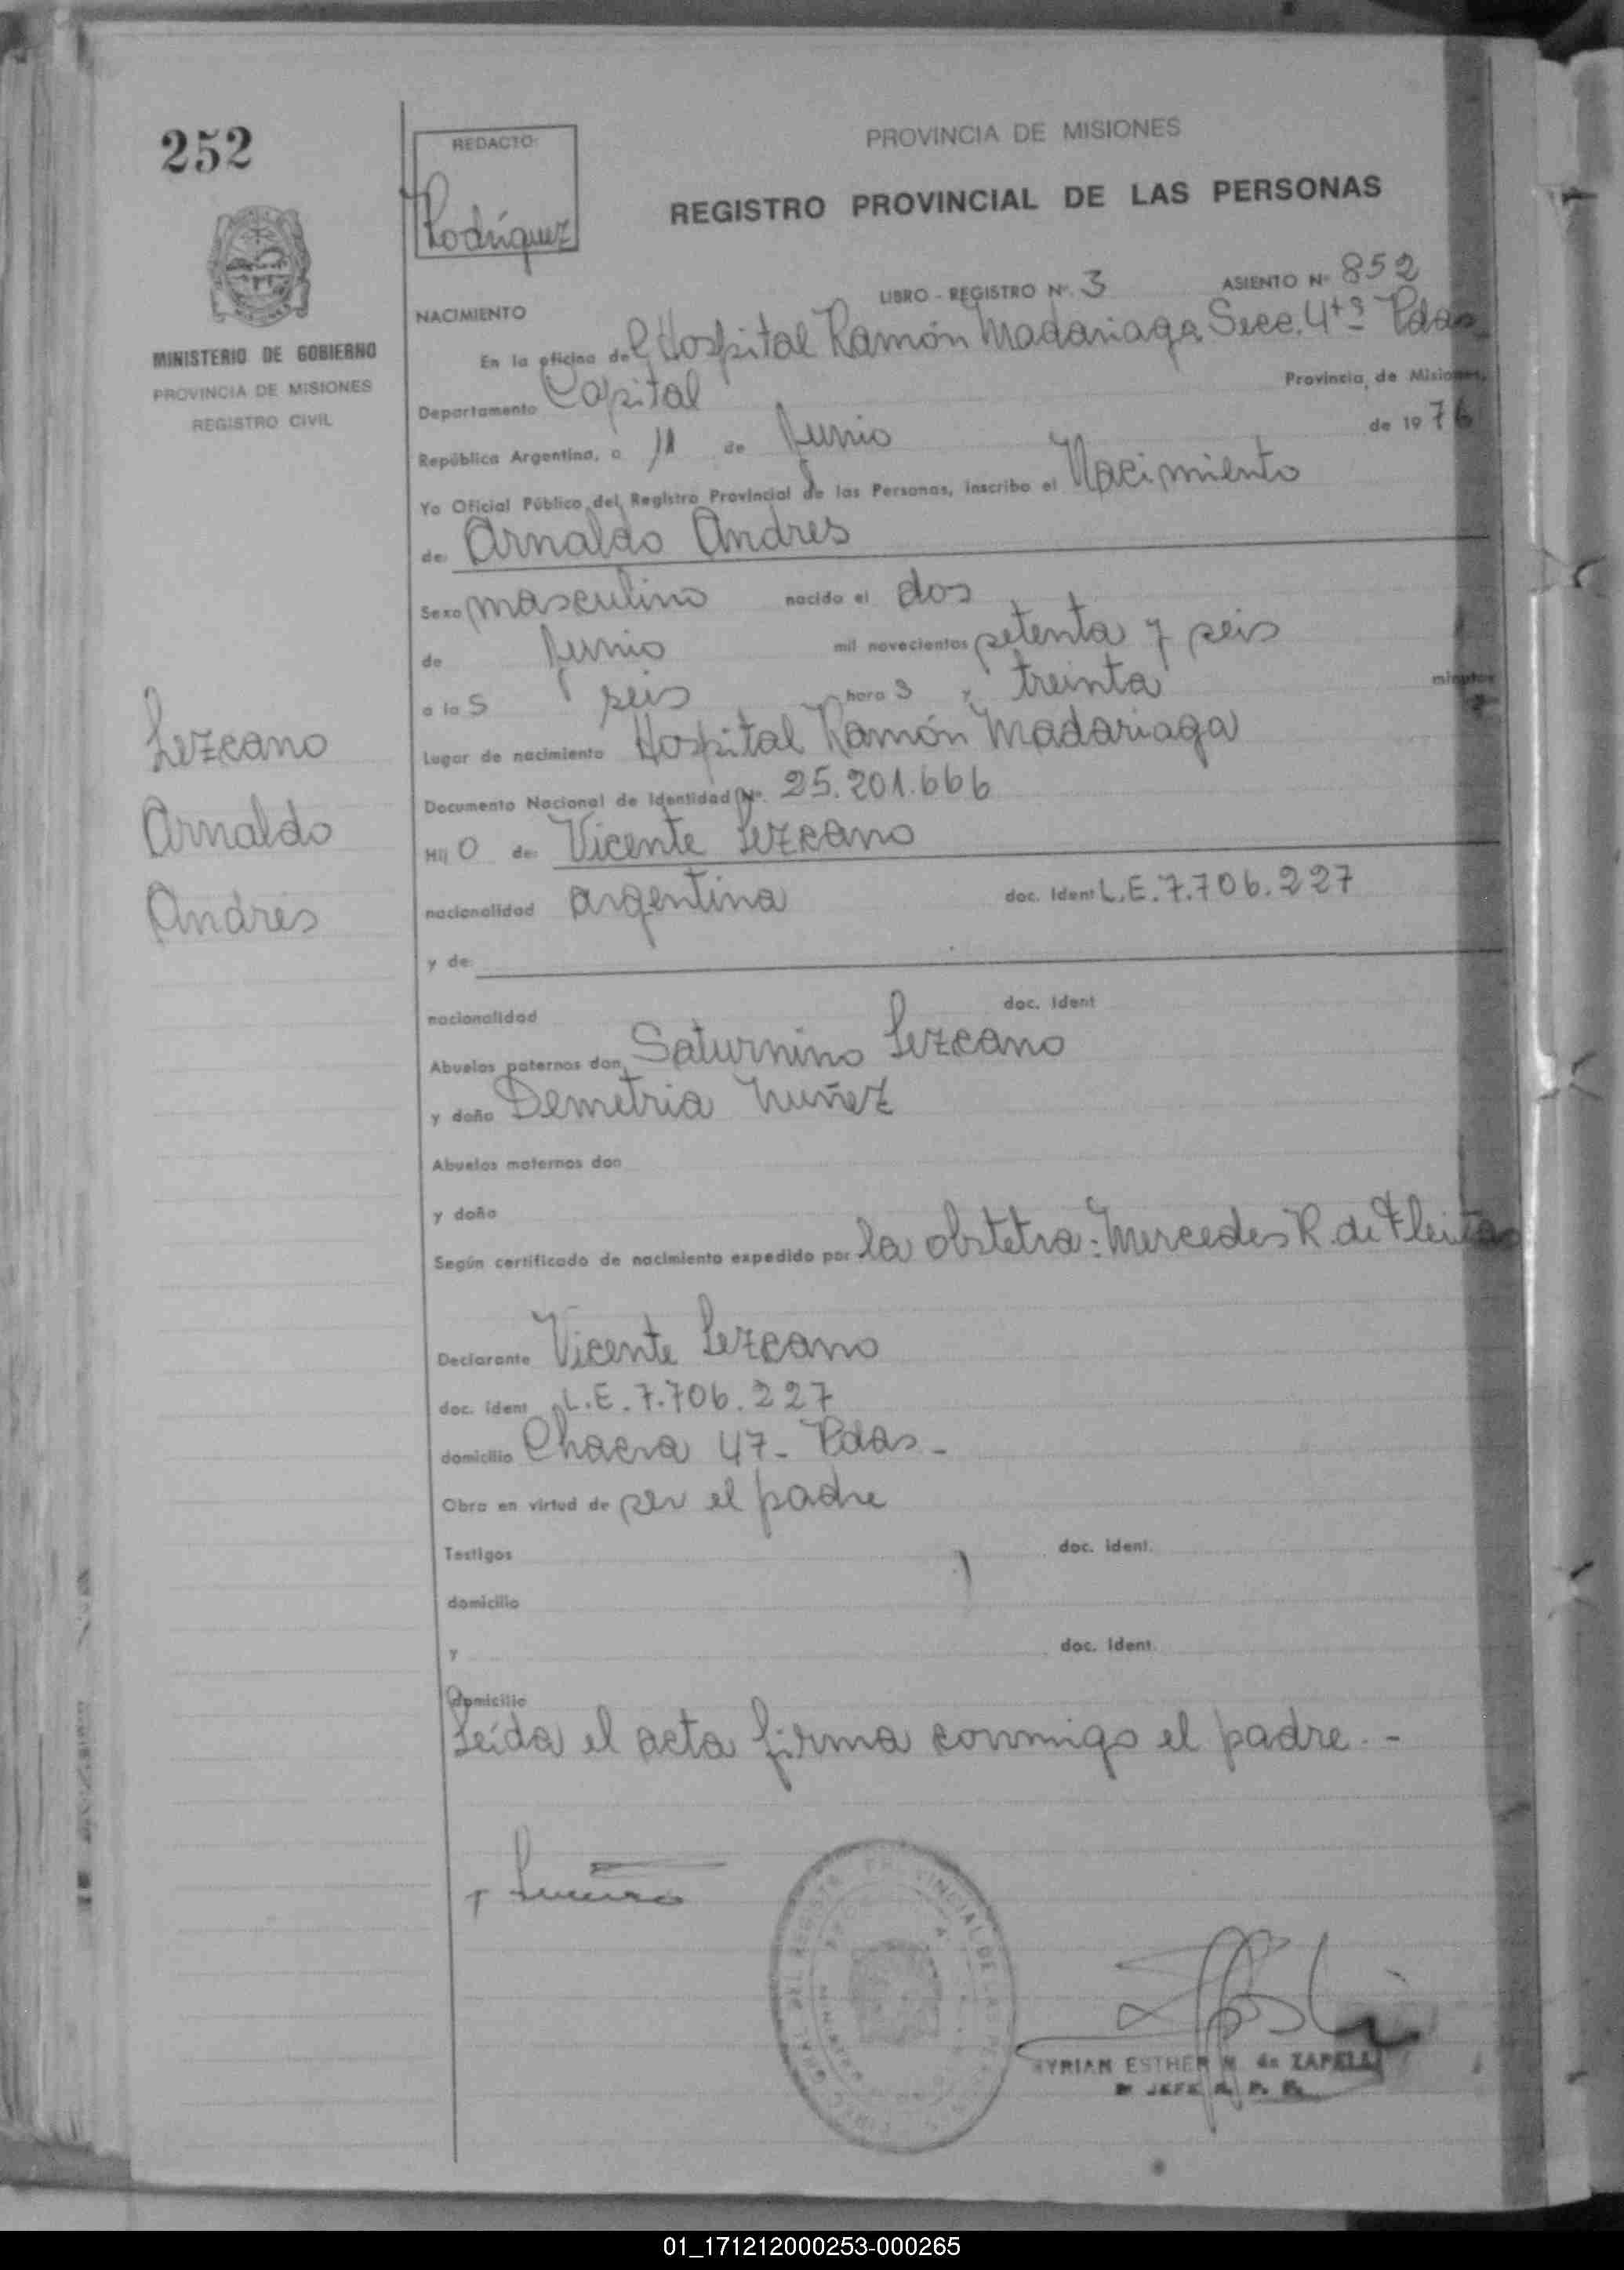 252
REDACTO
Rodríguez
PROVINCIA DE MISIONES
REGISTRO PROVINCIAL DE LAS PERSONAS
MINISTERIO DE GOBIERNO
PROVINCIA DE MISIONES
REGISTRO CIVIL
LIBRO - REGISTRO Nº. 3 ASIENTO Nº 852
NACIMIENTO
En la oficina del Hospital Ramón Madariaga Secc. 4ta Pdas
Departamento Capital Provincia de Misiones,
República Argentina, a 11 de Junio de 1976
Yo Oficial Público del Registro Provincial de las Personas, inscribo el Nacimiento
de Arnaldo Andres
Sexo masculino nacido el dos
de Junio mil novecientos setenta y seis
a las seis horas y treinta minutos
Lugar de nacimiento Hospital Ramón Madariaga
Documento Nacional de Identidad Nº. 25.201.666
Hijo de Vicente Lezcano
nacionalidad argentina doc. Ident L.E. 7.706.227
y de
nacionalidad doc. Ident
Abuelos paternos don Saturnino Lezcano
y doña Demetria Nuñez
Abuelos maternos don
y doña
Según certificado de nacimiento expedido por la obstetra: Mercedes R. de Fleitas
Declarante Vicente Lezcano
doc. ident L.E. 7.706.227
domicilio Chacra 47 - Pdas -
Obra en virtud de ser el padre
Testigos doc. ident.
domicilio
y doc. ident.
domicilio
Leída el acta firma conmigo el padre. -
Lezcano
Arnaldo
Andrés
MYRIAN ESTHER N. de ZAPELLI
JEFE R. P. P.
01_171212000253-000265